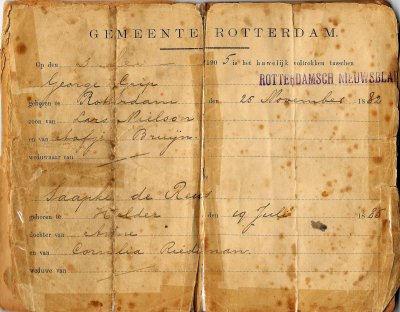 GEMEENTE ROTTERDAM.
Op den 1905 is het huwelijk voltrokken tusschen
ROTTERDAMSCH NIEUWSBLAD
George Grip
geboren te Rotterdam den 25 November 1882
zoon van Lars Nielson
en van Bruijn.
weduwnaar van
de Reus
geboren te Helder den 19 Juli 18
dochter van
en van Cornelia
weduwe van